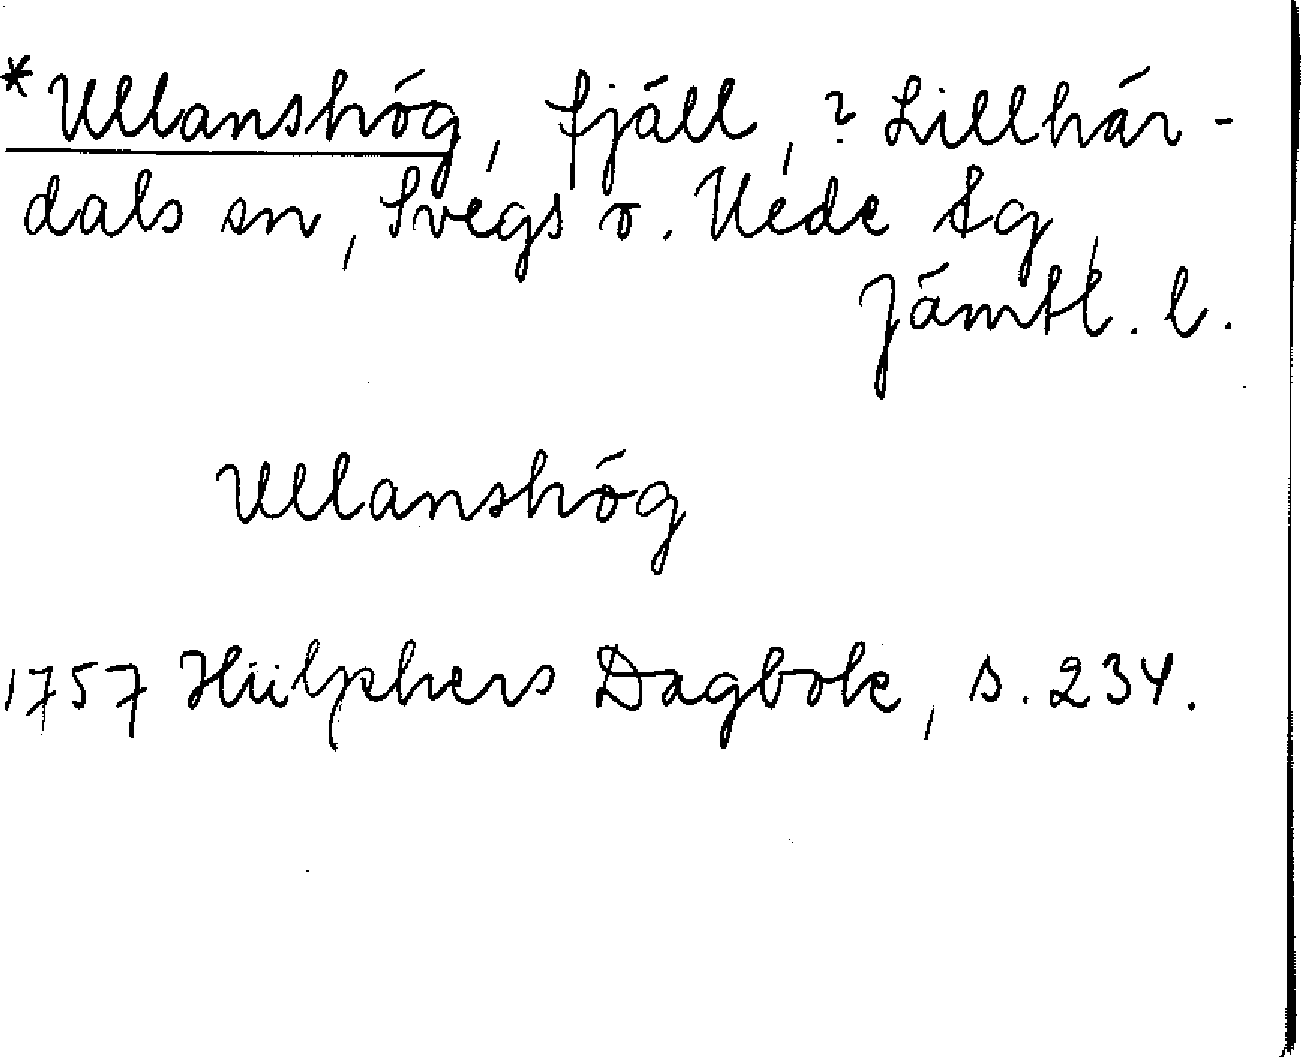 *Ullanshög, fjäll, ? Lillhär-
dals sn, Svegs o. Hede tg,
Jämtl. l.
Ullanshög
1757 Hülphers Dagbok, s. 234.